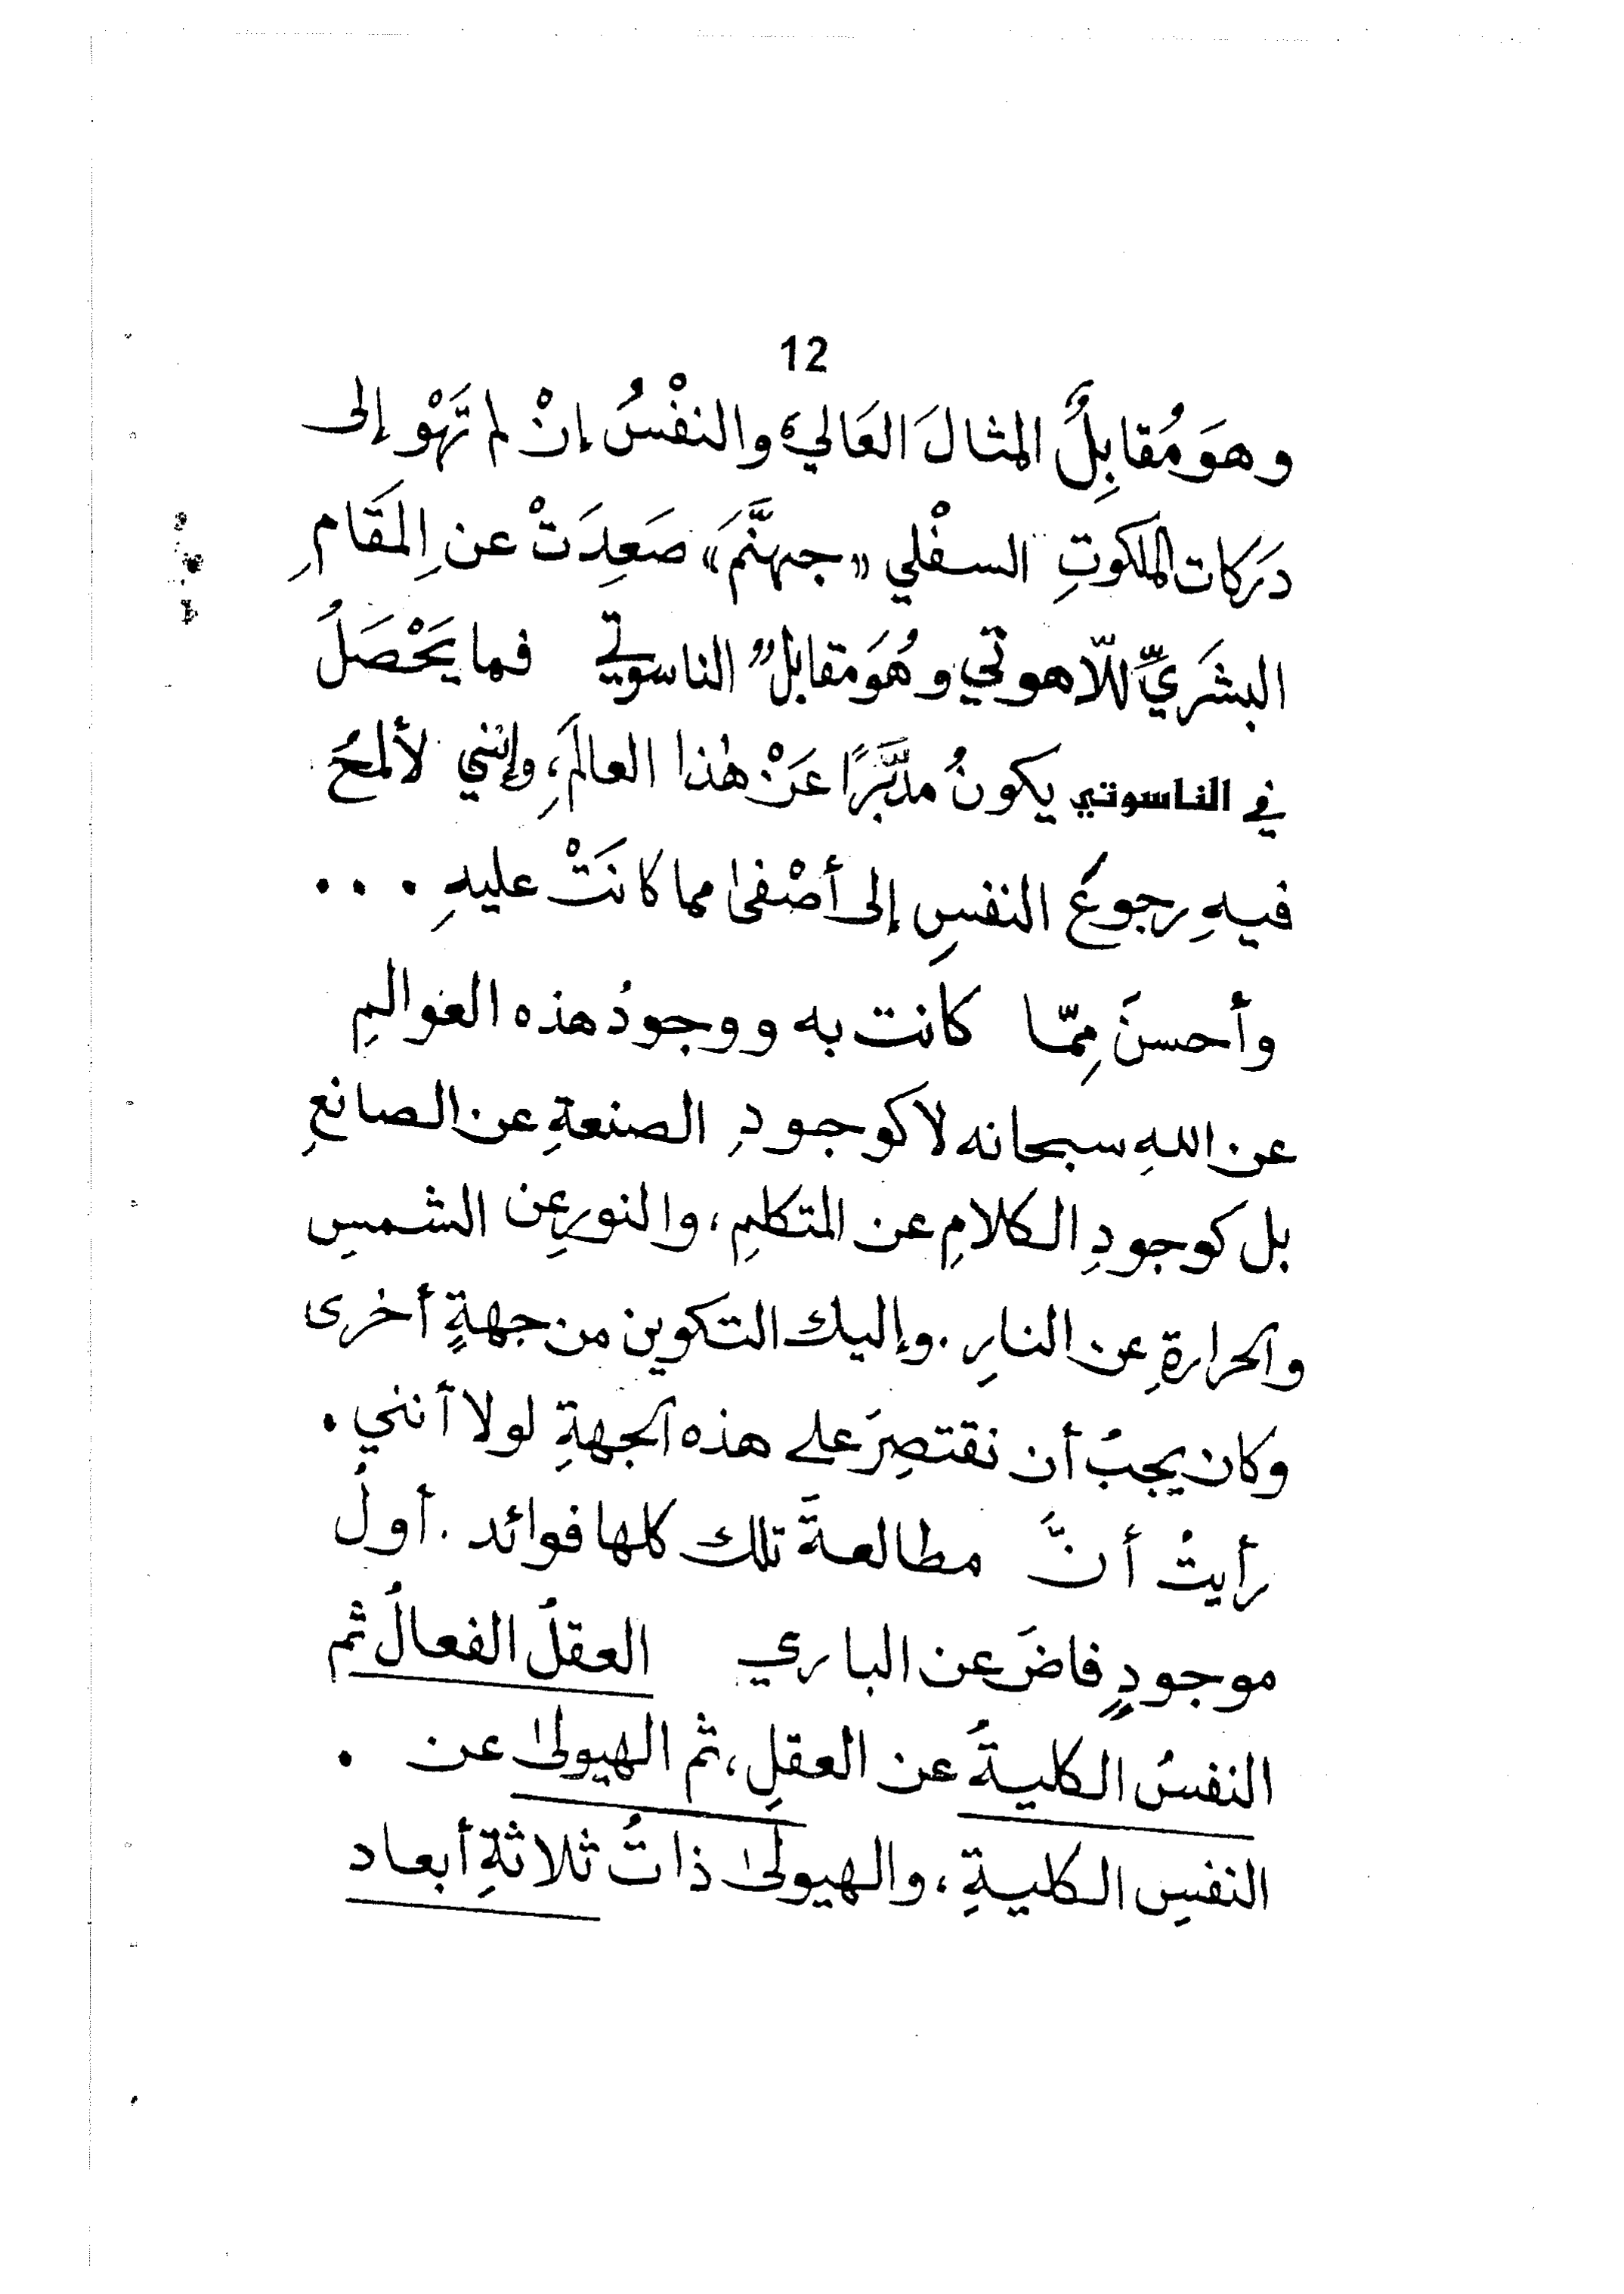 12
وهوَ مُقابِلٌ المثالَ العَالي، والنفْسُ إنْ لم تَهْو إلى
دَرَكات الملكوتِ السفْلي «جهنَّمَ» صَعِدَتْ عنِ المَقَامِ
البشَريِّ للّاهوتي وهُوَ مقابلٌ الناسوتي فما يَحْصَلُ
في الناسوتي يكونُ مدبَّرًا عَنْ هٰذا العالَمِ، وإنني لألمحُ
فيهِ رجوعَ النفسِ إلى أصْفىٰ مما كانَتْ عليهِ ...
وأحسنَ مِمّا كانت به ووجودُ هذه العوالمِ
عن اللهِ سبحانه لا كوجودِ الصنعةِ عن الصانعِ
بل كوجودِ الكلامِ عن المتكلمِ، والنورِ عن الشمسِ
والحرارةِ عن النارِ. وإليك التكوين من جهةٍ أخرى
وكان يجبُ أن نقتصِرَ على هذه الجهةِ لولا أنني.
رأيتُ أنَّ مطالعةَ تلك كلها فوائد. أولُ
موجودٍ فاضَ عن الباري العقلُ الفعالُ ثم
النفسُ الكليةُ عن العقلِ، ثم الهيولىٰ عن .
النفسِ الكليةِ، والهيولىٰ ذاتُ ثلاثةِ أبعاد